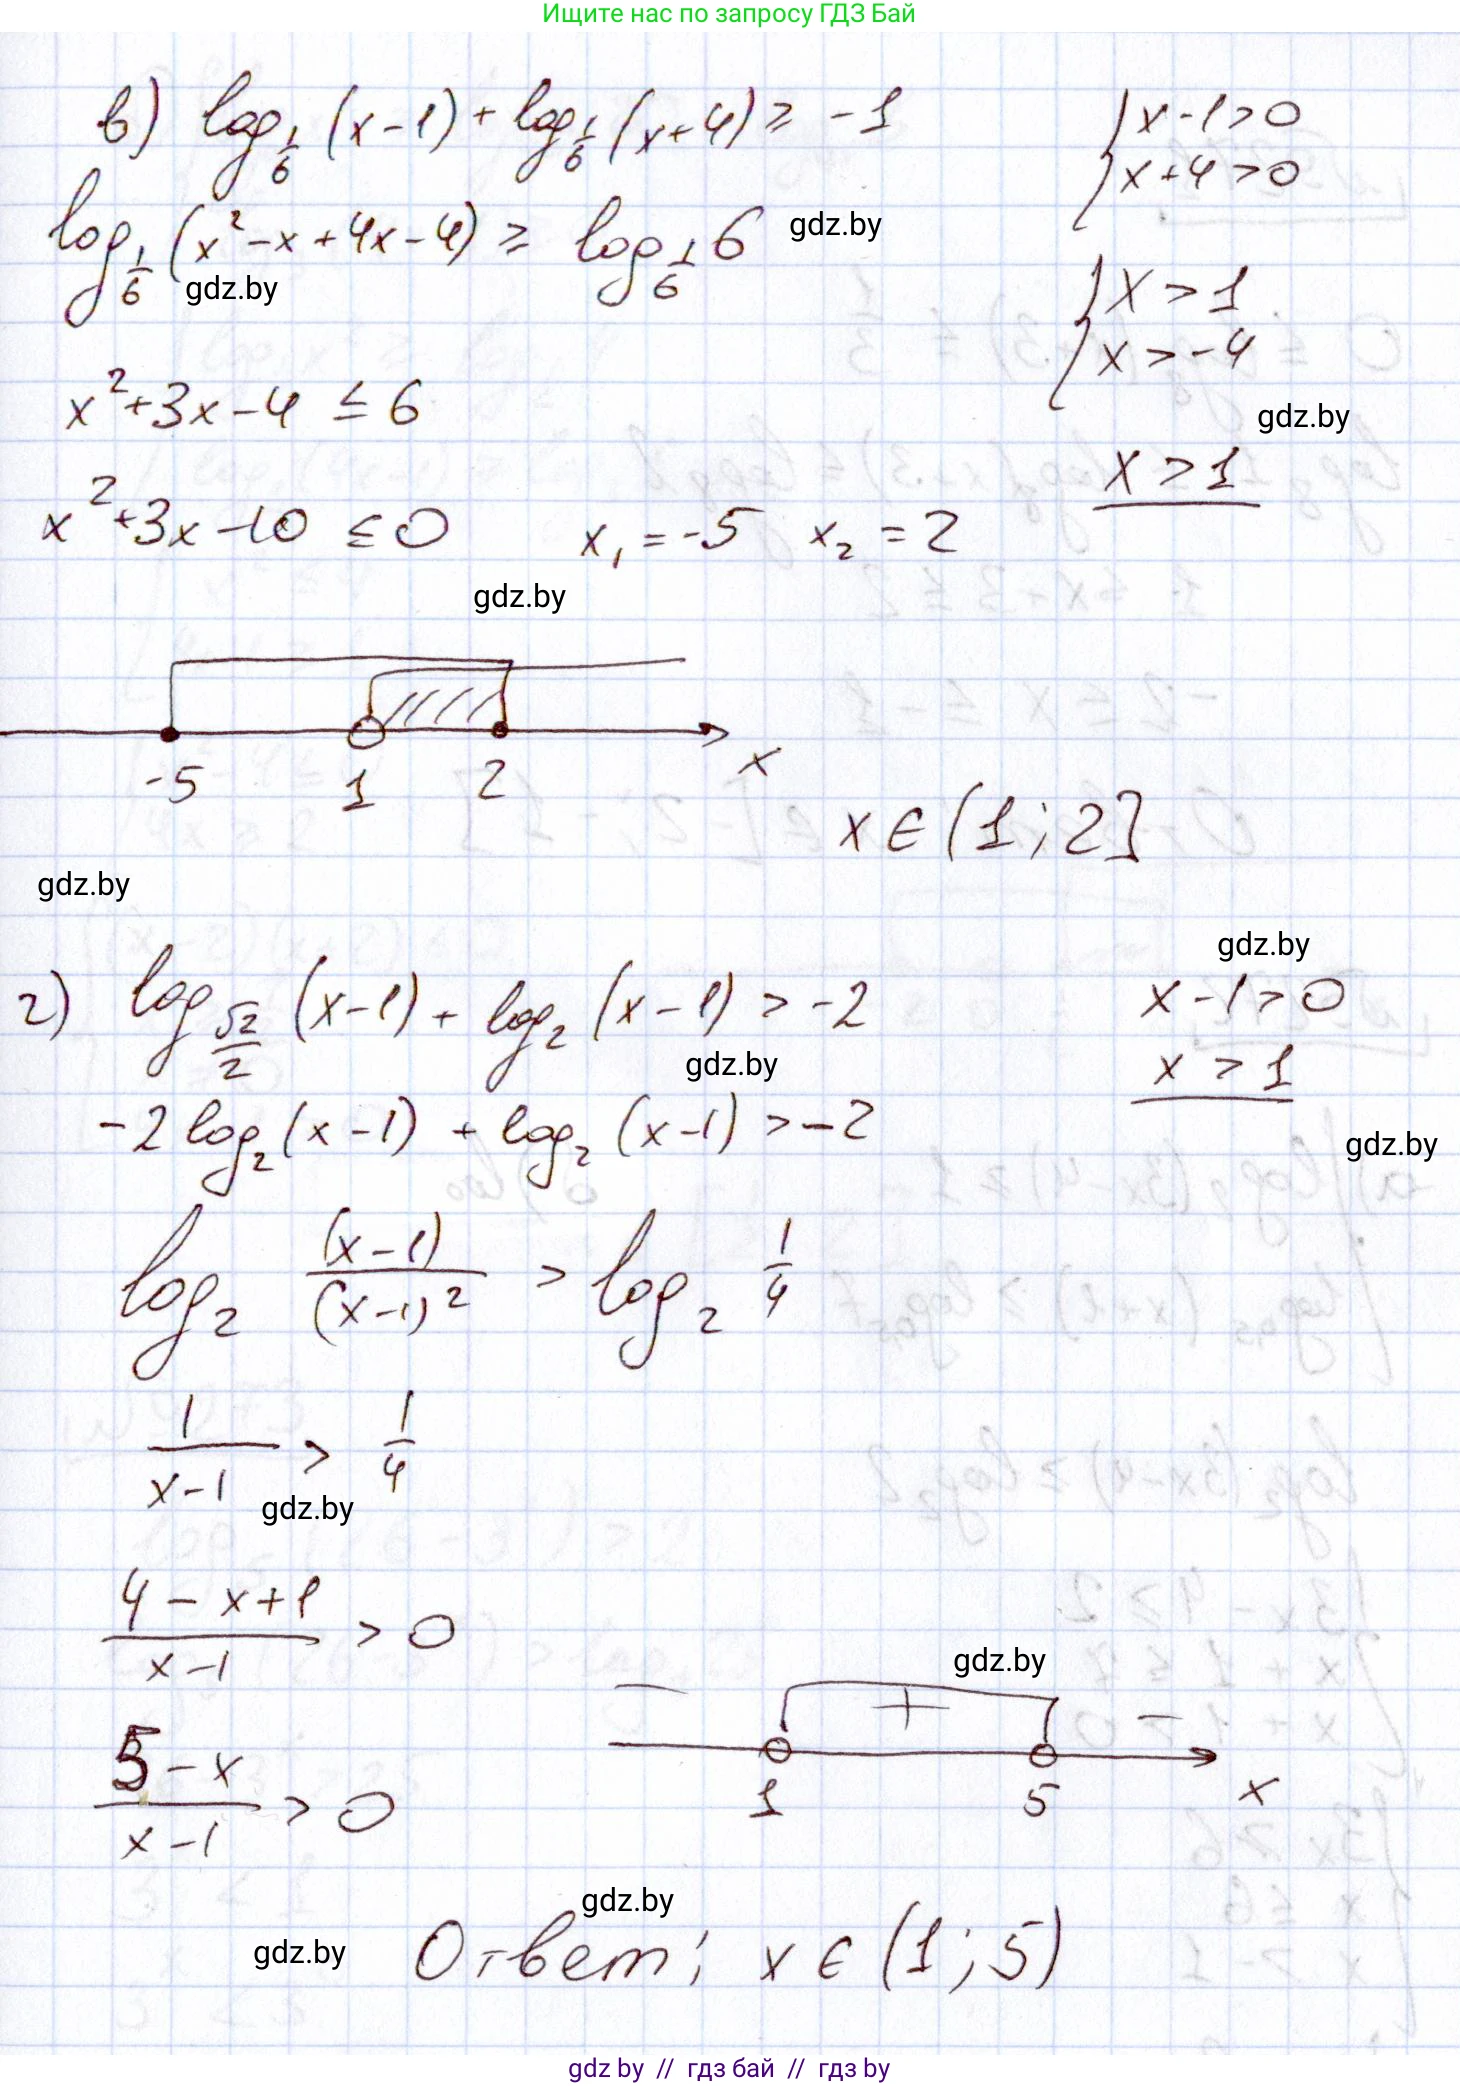 Ищите нас по запросу ГДЗ Бай
в) log_{1/6} (x-1) + log_{1/6} (x+4) ≥ -1
{ x-1>0
x+4>0
log_{1/6} (x²-x+4x-4) ≥ log_{1/6} 6
gdz.by
gdz.by
{ x>1
x>-4
x²+3x-4 ≤ 6
gdz.by
x>1
x²+3x-10 ≤ 0 x₁=-5 x₂=2
gdz.by
-5 1 2 x
x∈(1;2]
gdz.by
gdz.by
г) log_{√2/2} (x-1) + log₂ (x-1) > -2
x-1>0
x>1
gdz.by
-2log₂(x-1) + log₂(x-1) >-2
gdz.by
log₂ (x-1)/(x-1)² > log₂ 1/4
1/(x-1) > 1/4
gdz.by
(4-x+1)/(x-1) > 0
gdz.by
− + −
1 5 x
(5-x)/(x-1) > 0
gdz.by
gdz.by
Ответ: x∈(1;5)
gdz by // гдз бай // гдз by